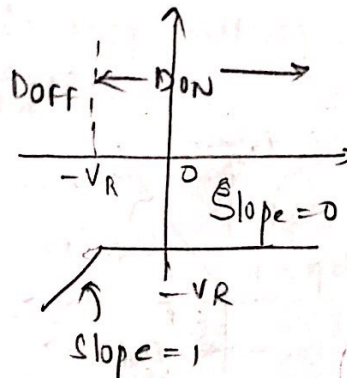 DOFF ← DON →
-VR 0
Slope=0
-VR
Slope=1